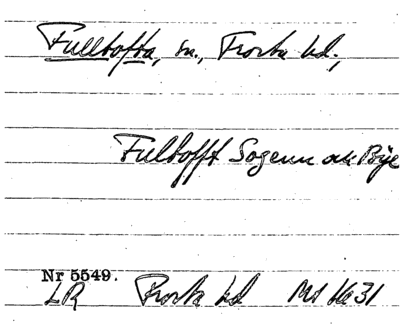 Fulltofta, sn., Frosta hd.,
Fultofft Sogenn och Bije
Nr 5549.
LR Frosta hd Ms 1631